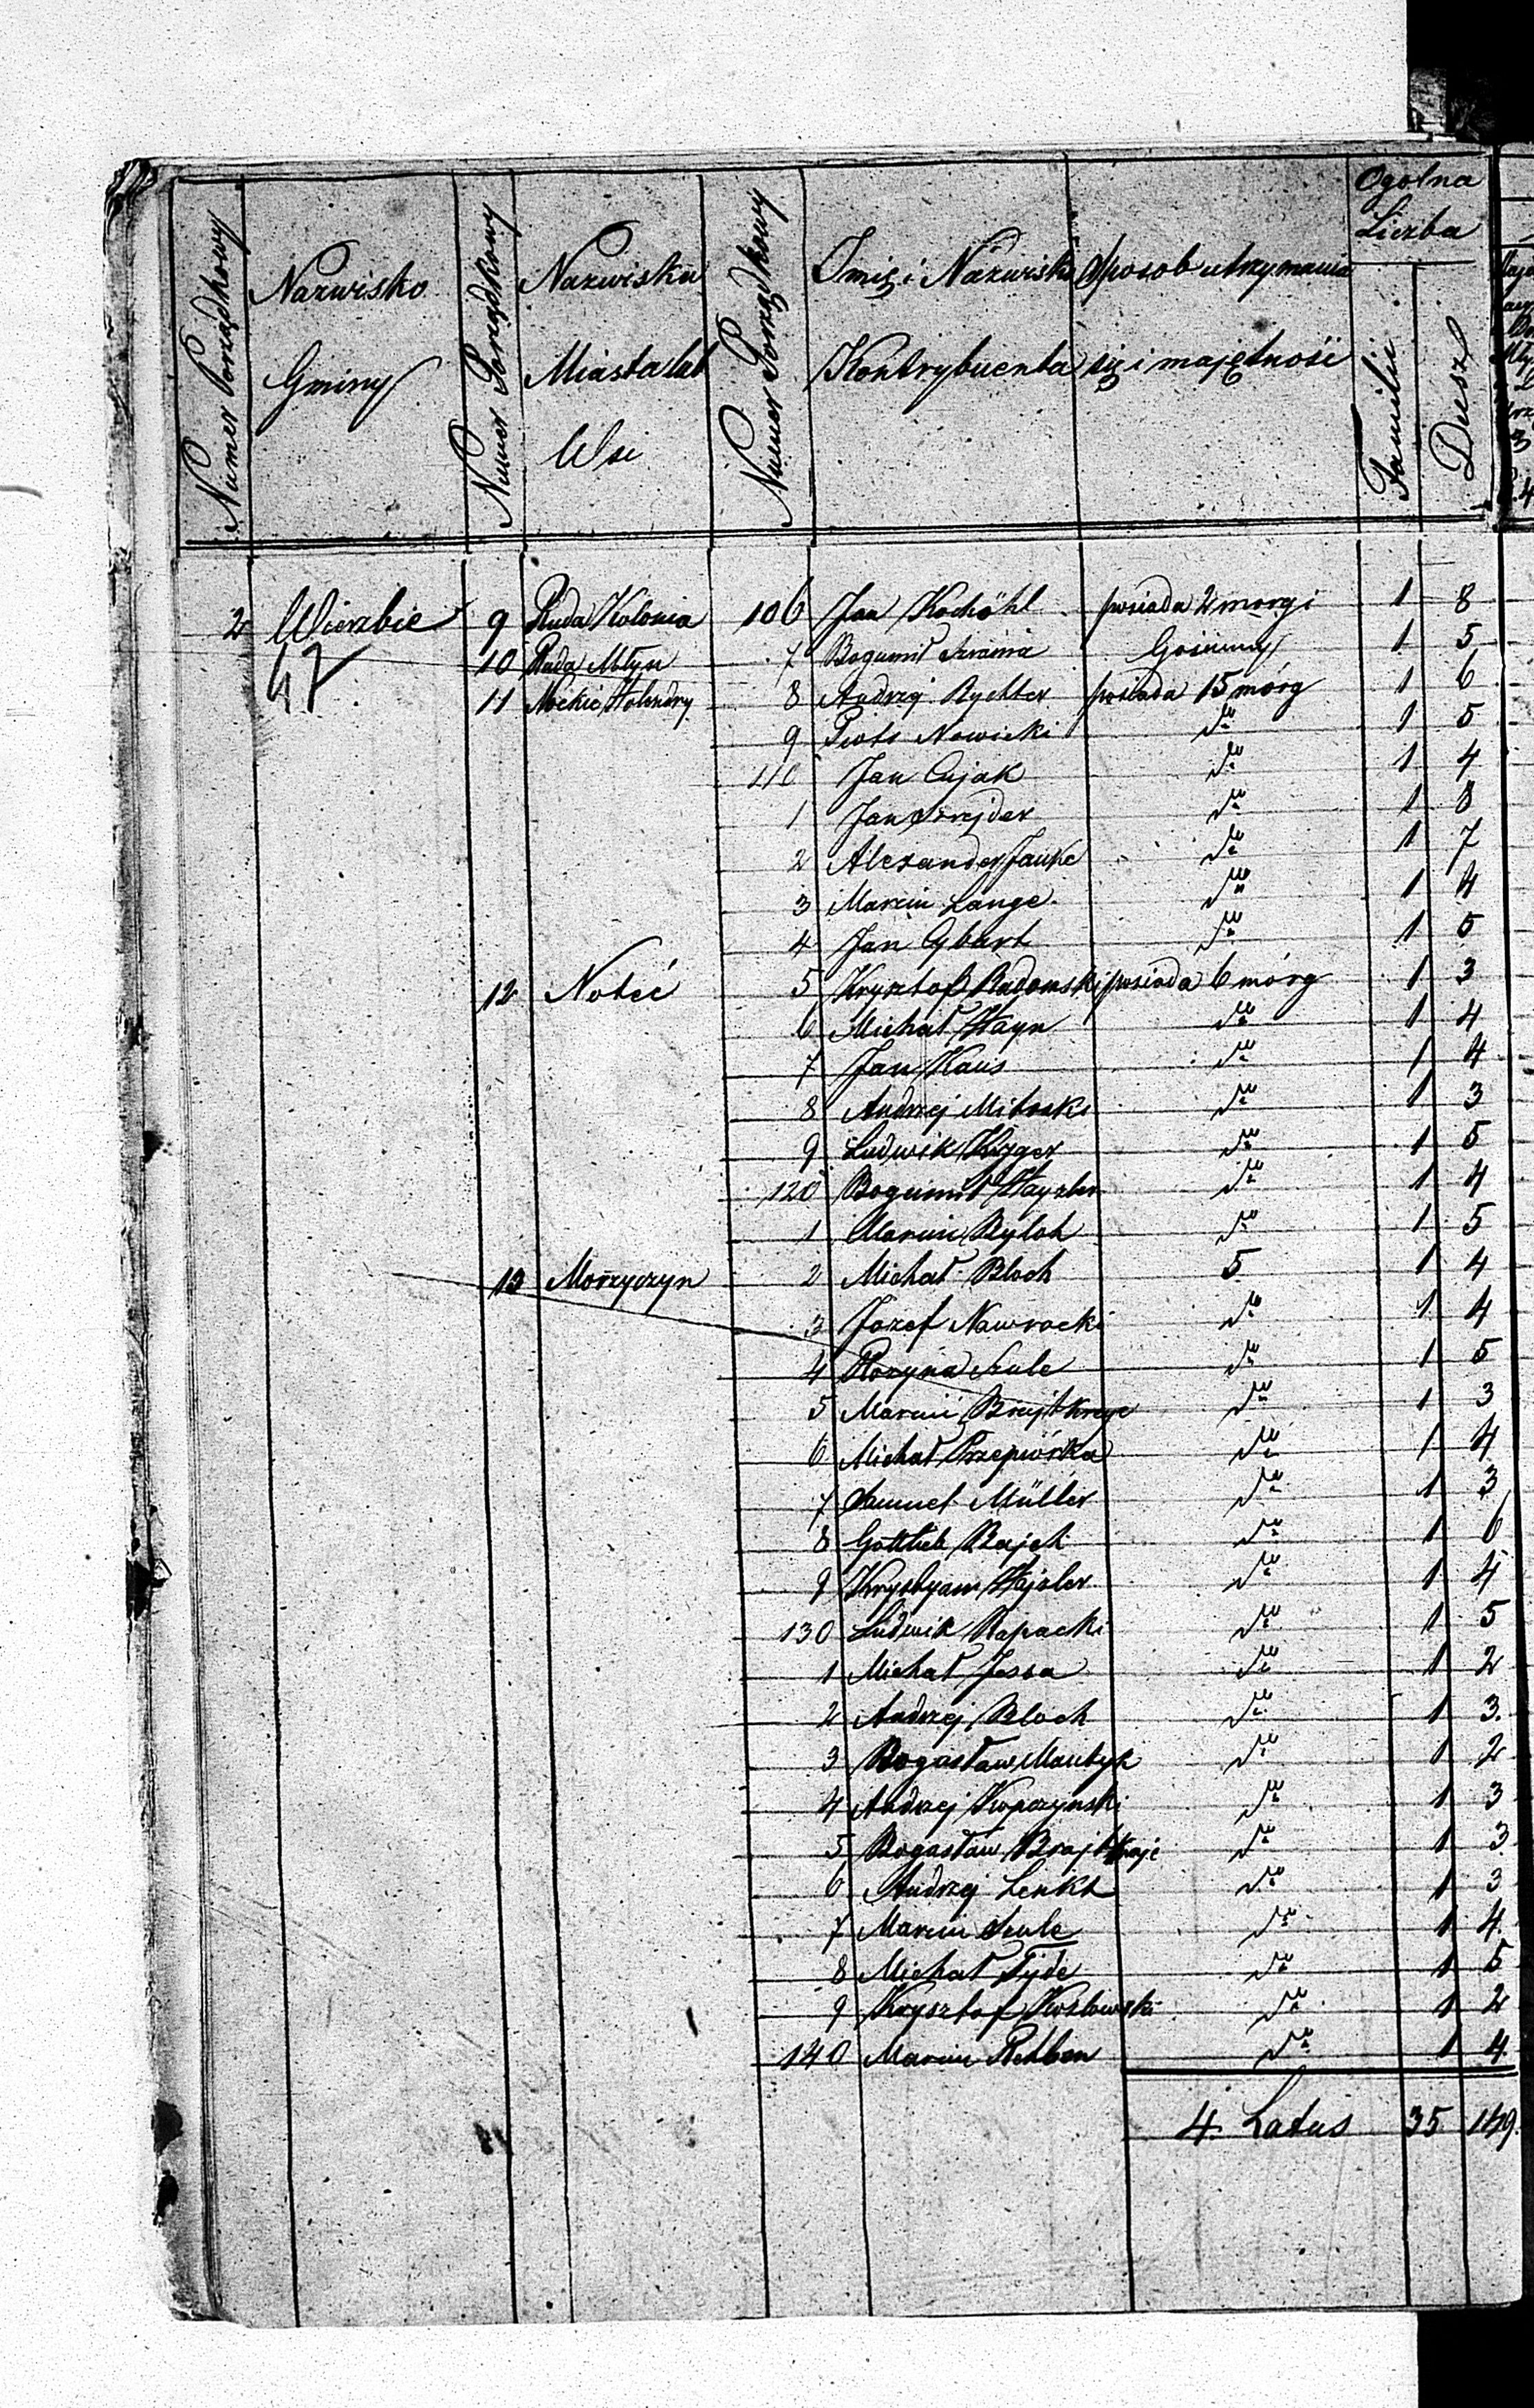 Numer Porządkowy
Nazwisko Gminy
Numer Porządkowy
Nazwisko Miasta lub Wsi
Numer Porządkowy
Imię i Nazwisko Kontrybuenta
Sposob utrzymania się i majętność
Ogolna Liczba
Familii
Dusz
2 Wierzbie 9 Ruda Kolonia 106 Jan Kochöhl posiada 2 morgi 1 8
47 10 Ruda Młyn 7 Bogumił 1 5
11 Holendry 8 Andrzej Rychter posiada 15 mórg 1 6
9 Piotr Nowicki do 1 5
110 Jan Cujak do 1 4
1 Jan Szrejder do 1 8
2 Alexander Janke do 1 7
3 Marcin Lange do 1 4
4 Jan Gybart do 1 5
12 Noteć 5 Krysztof Radomski posiada 6 mórg 1 3
6 Michał Hayn do 1 4
7 Jan Kaus do 1 4
8 Andrzej Mitoski do 1 3
9 Ludwik Kryger do 1 5
120 Bogumił Hayzler do 1 4
1 Marcin Byloh do 1 5
13 Morzyczyn 2 Michał Bloch 5 1 4
3 Jozef Nawrocki do 1 4
4 Rozyna Szulc do 1 5
5 Marcin Brajtkrejc do 1 3
6 Michał Przepiórka do 1 4
7 Samuel Müller do 1 3
8 Gottlieb Bajch do 1 6
9 Krystyam Hajzler do 1 4
130 Ludwik Rapacki do 1 5
1 Michał Jessa do 1 2
2 Andrzej Bloch do 1 3.
3 Bogasław Mantyk do 1 2
4 Andrzej Kopczynski do 1 3
5 Bogasław Brajtkrajc do 1 3
6 Andrzej Lenkt do 1 3
7 Marcin Szulc do 1 4
8 Michał Tyde do 1 5
9 Krysztof Kozłowski do 1 2
140 Marcin Rehben do 1 4
4 Latus 35 149.